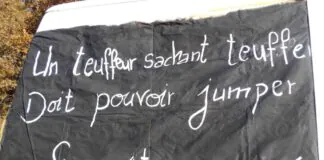 Un teuffeur sachant teuffe
Doit pouvoir jumper